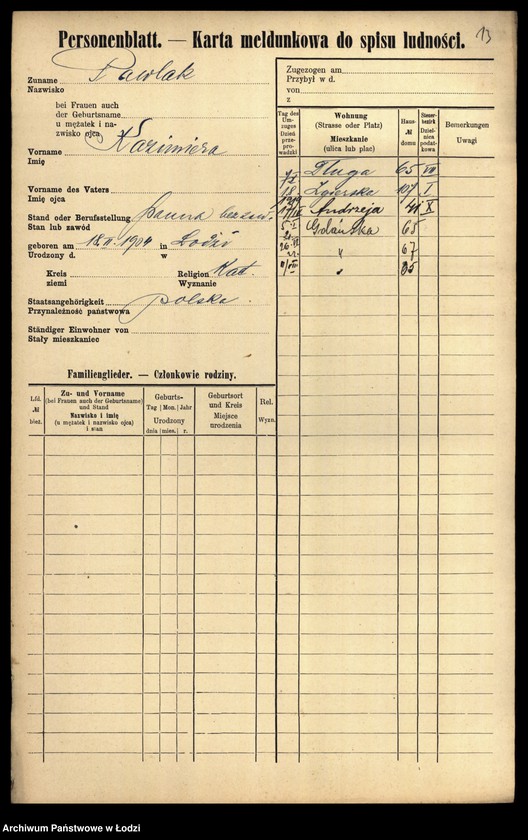 13
Personenblatt. — Karta meldunkowa do spisu ludności.
Zuname Pawlak
Nazwisko
bei Frauen auch
der Geburtsname
u mężatek i na-
zwisko ojca
Vorname Kazimiera
Imię
Vorname des Vaters
Imię ojca
Stand oder Berufsstellung panna bez zaw.
Stan lub zawód
geboren am 18.II.1904 in Łodzi
Urodzony d. w
Kreis Religion Kat.
ziemi Wyznanie
Staatsangehörigkeit polska
Przynależność państwowa
Ständiger Einwohner von
Stały mieszkaniec
Zugezogen am
Przybył w d.
von
z
Tag des Um-zuges Dzień prze-prowadzki
Wohnung (Strasse oder Platz) Mieszkanie (ulica lub plac)
Haus- № domu
Steuer-bezirk Dziel-nica podat-kowa
Bemerkungen Uwagi
Długa 65 VII
18. Zgierska 107 I
1919 17/IX Andrzeja 41 X
Gdańska 65
" 67
" 85
Familienglieder. — Członkowie rodziny.
Lfd. № bież.
Zu- und Vorname (bei Frauen auch der Geburtsname) und Stand Nazwisko i imię (u mężatek i nazwisko ojca) i stan
Geburts- Tag Mon. Jahr Urodzony dnia mies. r.
Geburtsort und Kreis Miejsce urodzenia
Rel. Wyzn.
Archiwum Państwowe w Łodzi